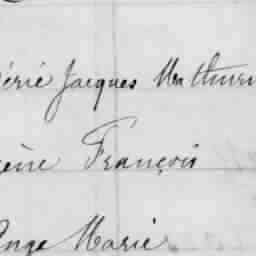 Jacques Mathurin
François
Ange Marie